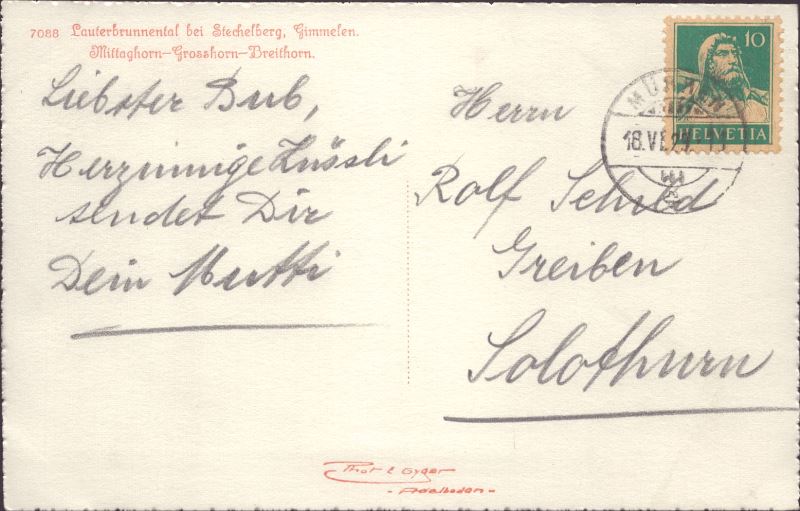 7088 Lauterbrunnental bei Stechelberg, Gimmelen.
Mittaghorn–Grosshorn–Breithorn.
Liebster Bub,
Herzinnige Küssli
sendet Dir
Dein Mutti
Herrn
Rolf Schild
Greiben
Solothurn
10
HELVETIA
MÜRREN
18.VI
Phot E Gyger
- Adelboden -